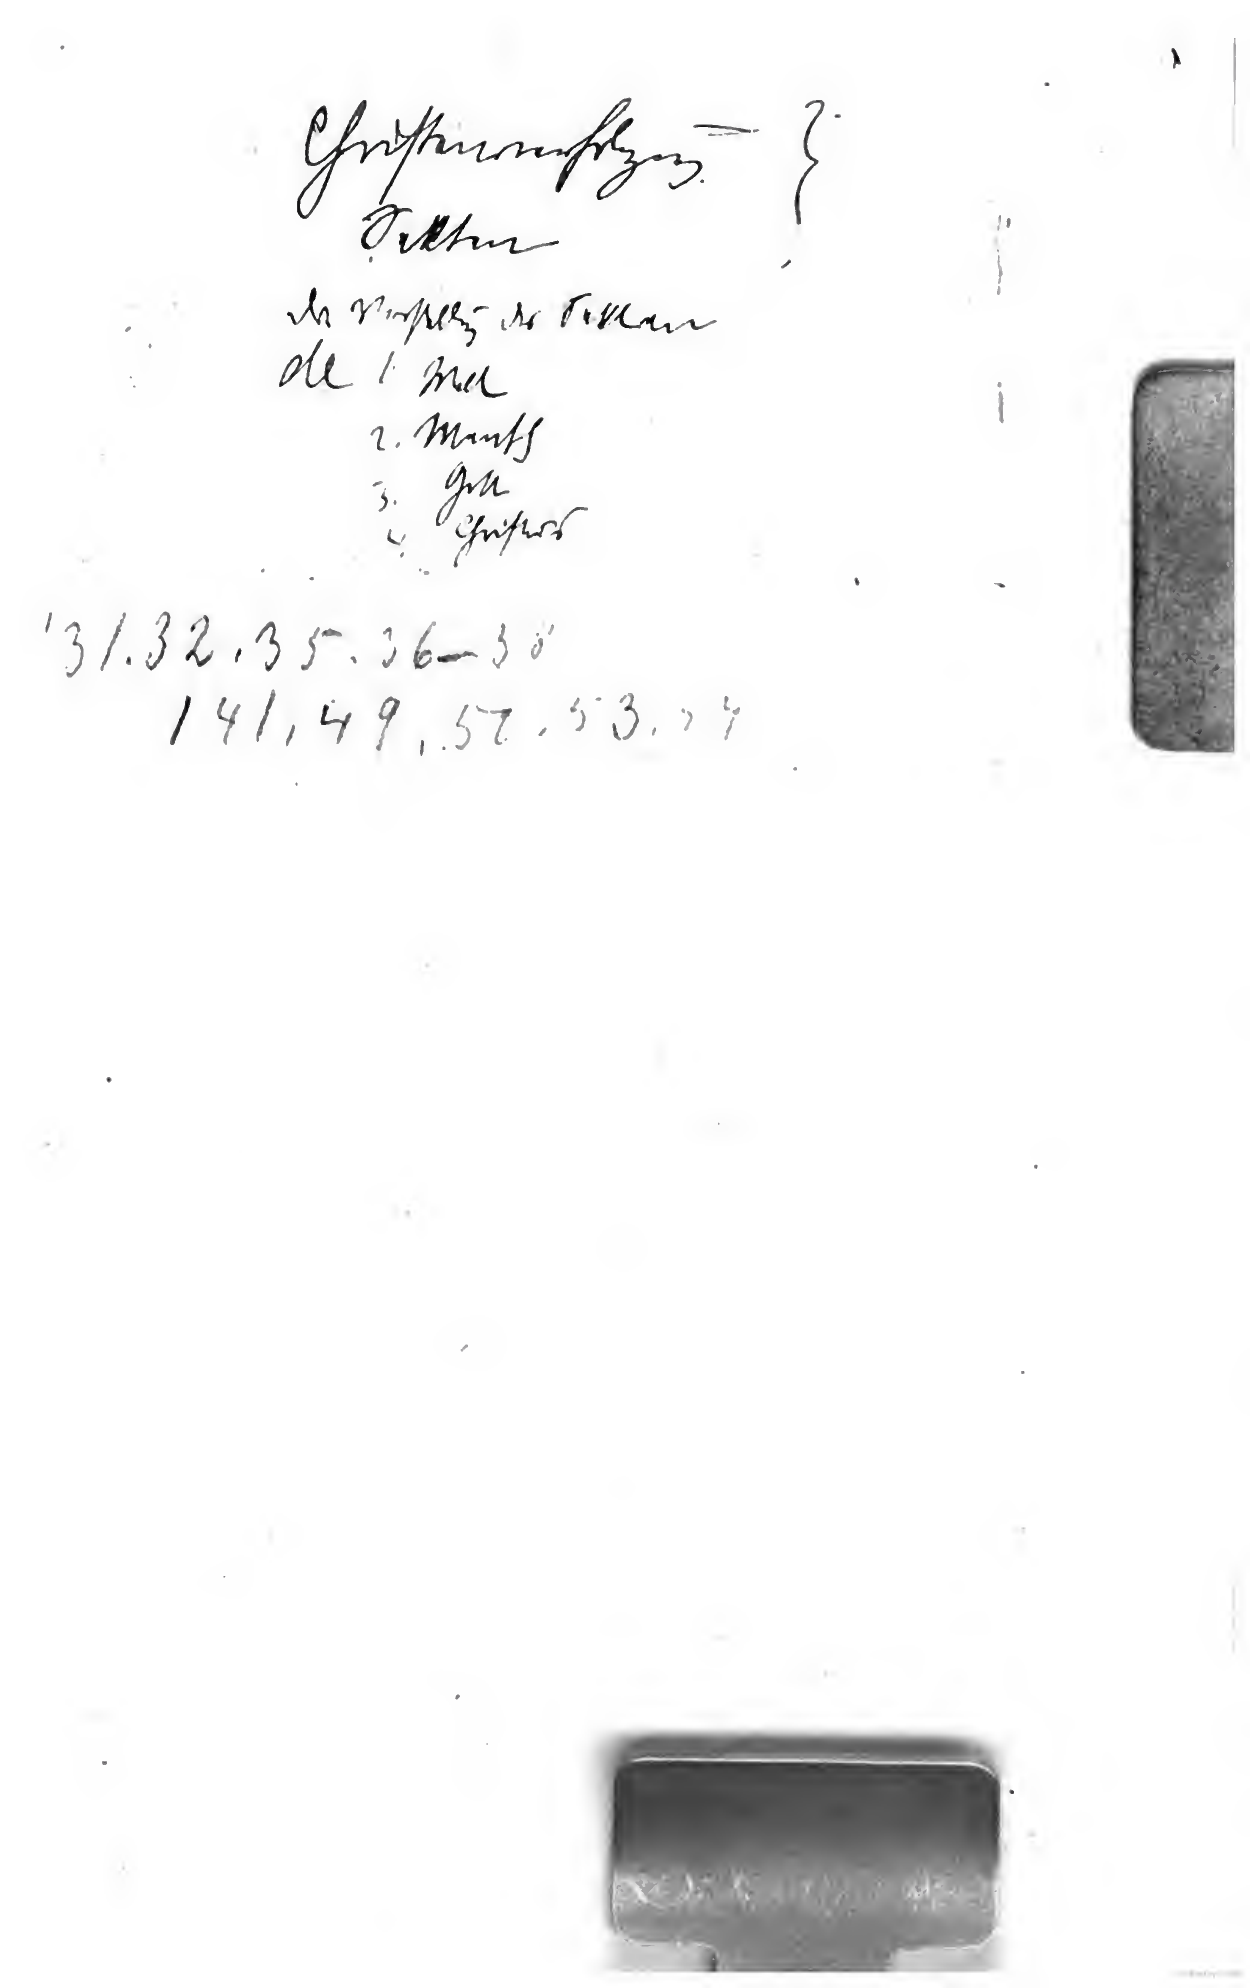 Christenverfolgung }
Sekten
die Vorstellung der Sekten
1. Welt
2. Mensch
3. Gott
4. Christus
31.32.35.36-38
141,49,.52.53.54